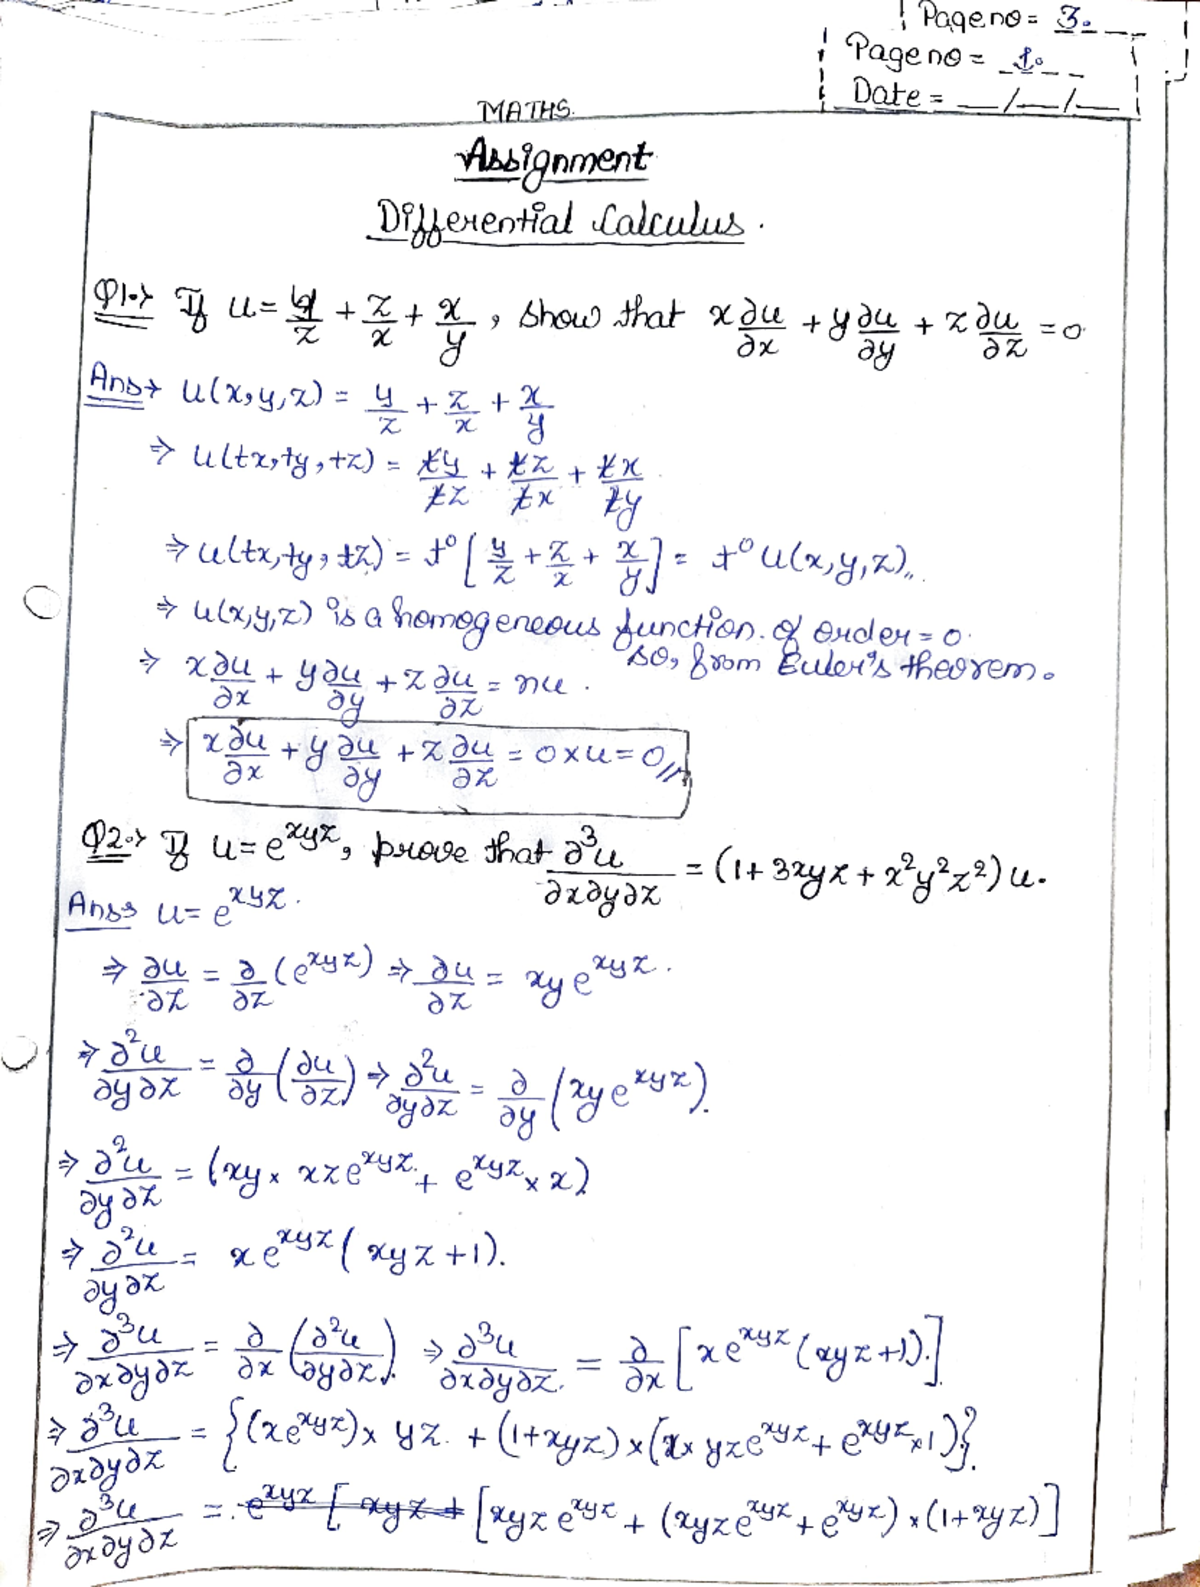 Page no = 3.
Page no = 1.
Date = __/__/__
MATHS.
Assignment
Differential Calculus.
Q1.→ If u = y/z + z/x + x/y, show that x ∂u/∂x + y ∂u/∂y + z ∂u/∂z = 0
Ans→ u(x,y,z) = y/z + z/x + x/y
⇒ u(tx,ty,tz) = ty/tz + tz/tx + tx/ty
⇒ u(tx,ty,tz) = t⁰ [y/z + z/x + x/y] = t⁰ u(x,y,z),,.
⇒ u(x,y,z) is a homogeneous function. of order = 0.
so, from Euler's theorem.
⇒ x ∂u/∂x + y ∂u/∂y + z ∂u/∂z = nu.
⇒ x ∂u/∂x + y ∂u/∂y + z ∂u/∂z = 0×u = 0//
Q2.→ If u = e^xyz, prove that ∂³u/∂x∂y∂z = (1+3xyz+x²y²z²)u.
Ans→ u = e^xyz.
⇒ ∂u/∂z = ∂/∂z (e^xyz) ⇒ ∂u/∂z = xy e^xyz.
⇒ ∂²u/∂y∂z = ∂/∂y (∂u/∂z) ⇒ ∂²u/∂y∂z = ∂/∂y (xy e^xyz).
⇒ ∂²u/∂y∂z = (xy × xz e^xyz + e^xyz × x)
⇒ ∂²u/∂y∂z = x e^xyz (xyz+1).
⇒ ∂³u/∂x∂y∂z = ∂/∂x (∂²u/∂y∂z) ⇒ ∂³u/∂x∂y∂z = ∂/∂x [x e^xyz (xyz+1).]
⇒ ∂³u/∂x∂y∂z = {(x e^xyz) × yz. + (1+xyz) × (x × yz e^xyz + e^xyz × 1)}.
⇒ ∂³u/∂x∂y∂z = e^xyz [ xyz + [xyz e^xyz + (xyz e^xyz + e^xyz) × (1+xyz)]